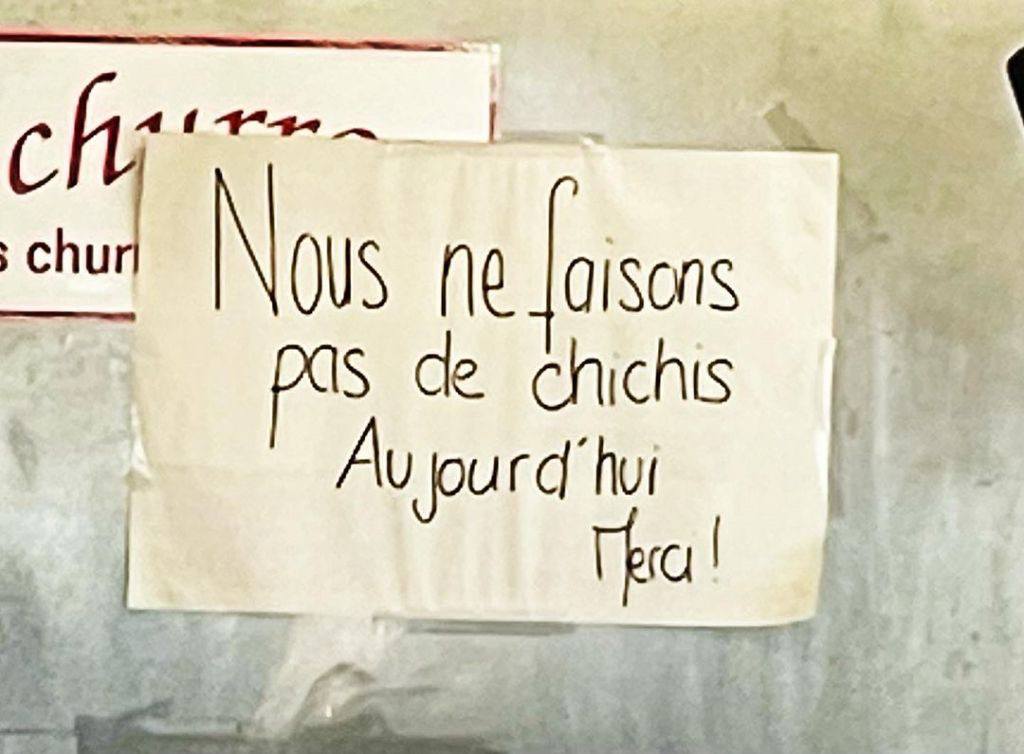 churro
s churr
Nous ne faisons
pas de chichis
Aujourd'hui
Merci !